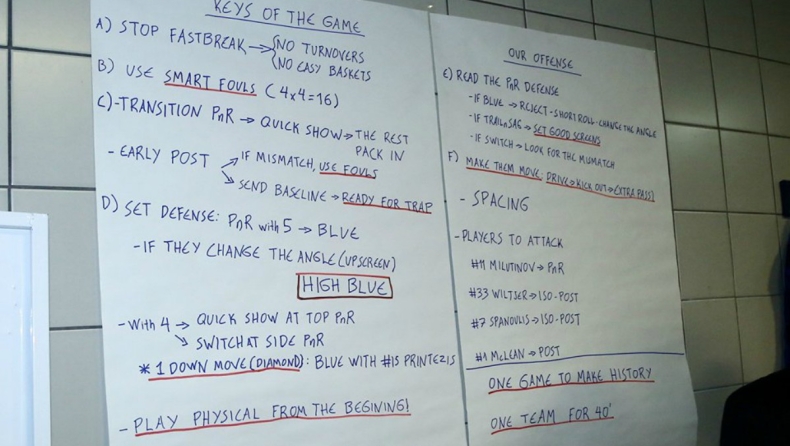 KEYS OF THE GAME
A) STOP FASTBREAK → NO TURNOVERS
NO EASY BASKETS
B) USE SMART FOULS (4x4=16)
C)-TRANSITION PnR → QUICK SHOW → THE REST
PACK IN
- EARLY POST → IF MISMATCH, USE FOULS
→ SEND BASELINE → READY FOR TRAP
D) SET DEFENSE: PnR with 5 → BLUE
- IF THEY CHANGE THE ANGLE (UPSCREEN)
HIGH BLUE
- With 4 → QUICK SHOW AT TOP PnR
→ SWITCH AT SIDE PnR
* 1 DOWN MOVE (DIAMOND): BLUE WITH #15 PRINTEZIS
- PLAY PHYSICAL FROM THE BEGINING!
OUR OFFENSE
E) READ THE PnR DEFENSE
- IF BLUE → REJECT - SHORT ROLL - CHANGE THE ANGLE
- IF TRAILnSAG → SET GOOD SCREENS
- IF SWITCH → LOOK FOR THE MISMATCH
F) MAKE THEM MOVE: DRIVE → KICK OUT → EXTRA PASS)
- SPACING
- PLAYERS TO ATTACK
#11 MILUTINOV → PnR
#33 WILTJER → ISO-POST
#7 SPANOULIS → ISO-POST
#1 McLEAN → POST
ONE GAME TO MAKE HISTORY
ONE TEAM FOR 40'